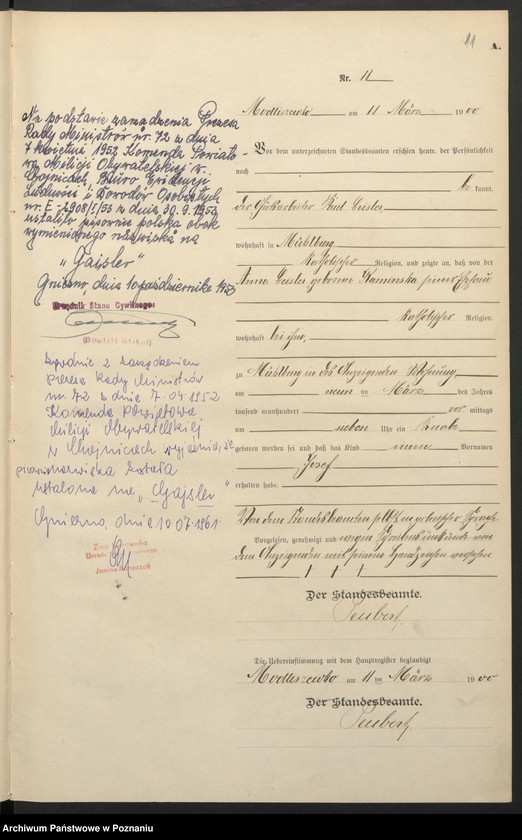 11
A.
Nr. 11
Modliszewko am 11 März 1900
Vor dem unterzeichneten Standesbeamten erschien heute, der Persönlichkeit
nach
kannt,
der Gutsarbeiter Geisler
wohnhaft in Mühlburg
katholischer Religion, und zeigte an, daß von der
Anna Geisler geborene Kaminska seiner Ehefrau
katholischer Religion
wohnhaft bei ihm,
zu Mühlburg in des Anzeigenden Wohnung
am neun ten März des Jahres
tausend neunhundert vor mittags
um sieben Uhr ein Knabe
geboren worden sei und daß das Kind einen Vornamen
Josef
erhalten habe.
Von dem Standesbeamten in polnischer Sprache
Vorgelesen, genehmigt und wegen Schreibensunkunde von
dem Anzeigenden mit seinem Handzeichen versehen
† † †
Der Standesbeamte.
Teubert
Die Uebereinstimmung mit dem Hauptregister beglaubigt
Modliszewko am 11 ten März 1900
Der Standesbeamte.
Teubert
Na podstawie zarządzenia Prezesa
Rady Ministrów nr. 72 z dnia
7 kwietnia 1952 Komenda Powiato-
wa Milicji Obywatelskiej w
Chojnicach, Biuro Ewidencji
Ludności i Dowodów Osobistych
nr. E-2908/I/53 z dnia 30.9.1953
ustaliło pisownię polską obok
wymienionego nazwiska na
„Gajsler”
Gniezno, dnia 10 października 1953
Urzędnik Stanu Cywilnego:
Zgodnie z zarządzeniem
Prezesa Rady Ministrów
nr. 72 z dnia 7.04.1952
Komenda Powiatowa
Milicji Obywatelskiej
w Chojnicach wyjaśnia, że
pisownia nazwiska została
ustalona na „Gajsler”
Gniezno, dnia 19.07.1961
Archiwum Państwowe w Poznaniu